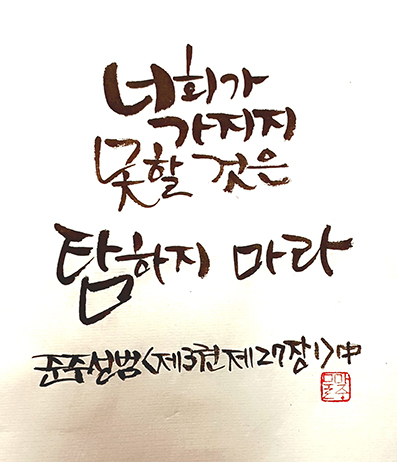 너희가
가지지
못할 것은
탐하지 마라
준주성범<제3권제27장1>中